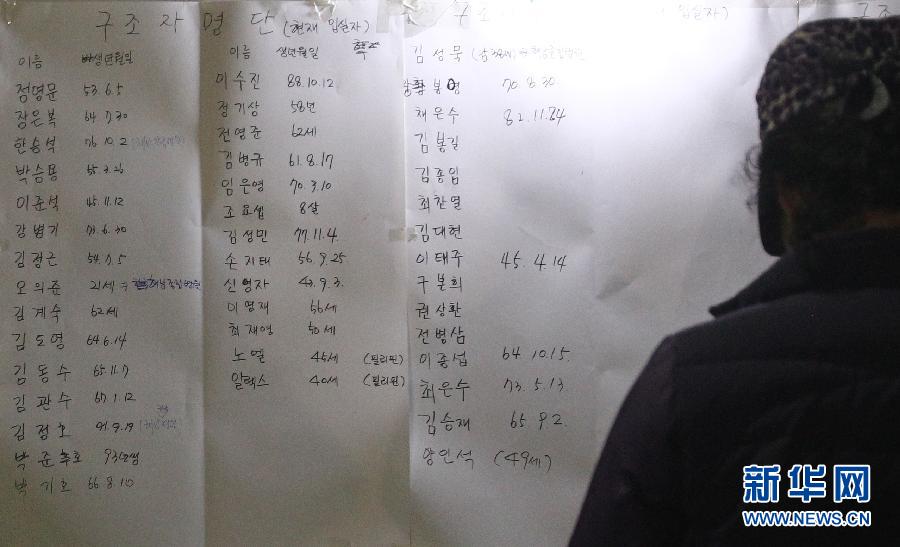 구조자 명단 (현재 입실자)
이름 생년월일
정명문 53.6.5
장은복 64.7.30
한승석 76.10.2
박승용
이준석 45.11.12
강병기 .6.30
김정근
오의준 21세
김계숙 62세
김도영 64.6.14
김동수 65.11.7
김관수 67.1.12
김정호 91.9.19
박준호
박기호 66.8.10
이름 생년월일
이수진 88.10.12
정기상 58년
전영준 62세
김병규 61.8.17
임은영 70.3.10
조요셉 8살
김성민 77.11.4.
손지태 56.9.25
신영자 .9.3.
이영재 56세
최재영 50세
노엘 45세 (필리핀)
알렉스 40세 (필리핀)
구조 입실자)
김성묵
봉영 70.8.30
채은수 82.11.24
김봉길
김종임
최찬열
김대현
이태주 45.4.14
구본희
권상환
전병삼
이종섭 64.10.15.
최은수 73.5.13
김승재 65.9.2.
양인석 (49세)
구조
新华网
WWW.NEWS.CN